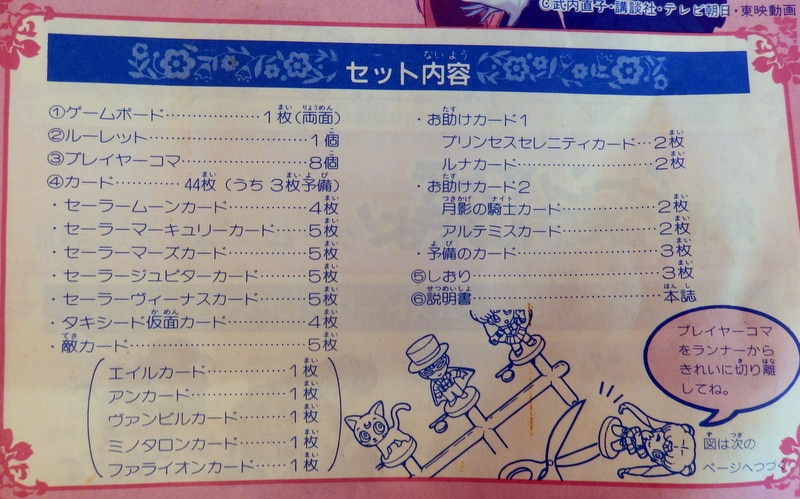 ©武内直子・講談社・テレビ朝日・東映動画
セット内容
①ゲームボード……………1枚(両面)
②ルーレット……………………1個
③プレイヤーコマ………………8個
④カード…………44枚(うち3枚予備)
・セーラームーンカード…………4枚
・セーラーマーキュリーカード……5枚
・セーラーマーズカード…………5枚
・セーラージュピターカード……5枚
・セーラーヴィーナスカード……5枚
・タキシード仮面カード…………4枚
・敵カード………………………5枚
エイルカード…………1枚
アンカード……………1枚
ヴァンピルカード……1枚
ミノタロンカード……1枚
ファライオンカード……1枚
・お助けカード1
プリンセスセレニティカード…2枚
ルナカード……………………2枚
・お助けカード2
月影の騎士カード……………2枚
アルテミスカード……………2枚
・予備のカード…………………3枚
⑤しおり…………………………3枚
⑥説明書…………………………本誌
プレイヤーコマ
をランナーから
きれいに切り離
してね。
図は次の
ページへつづく